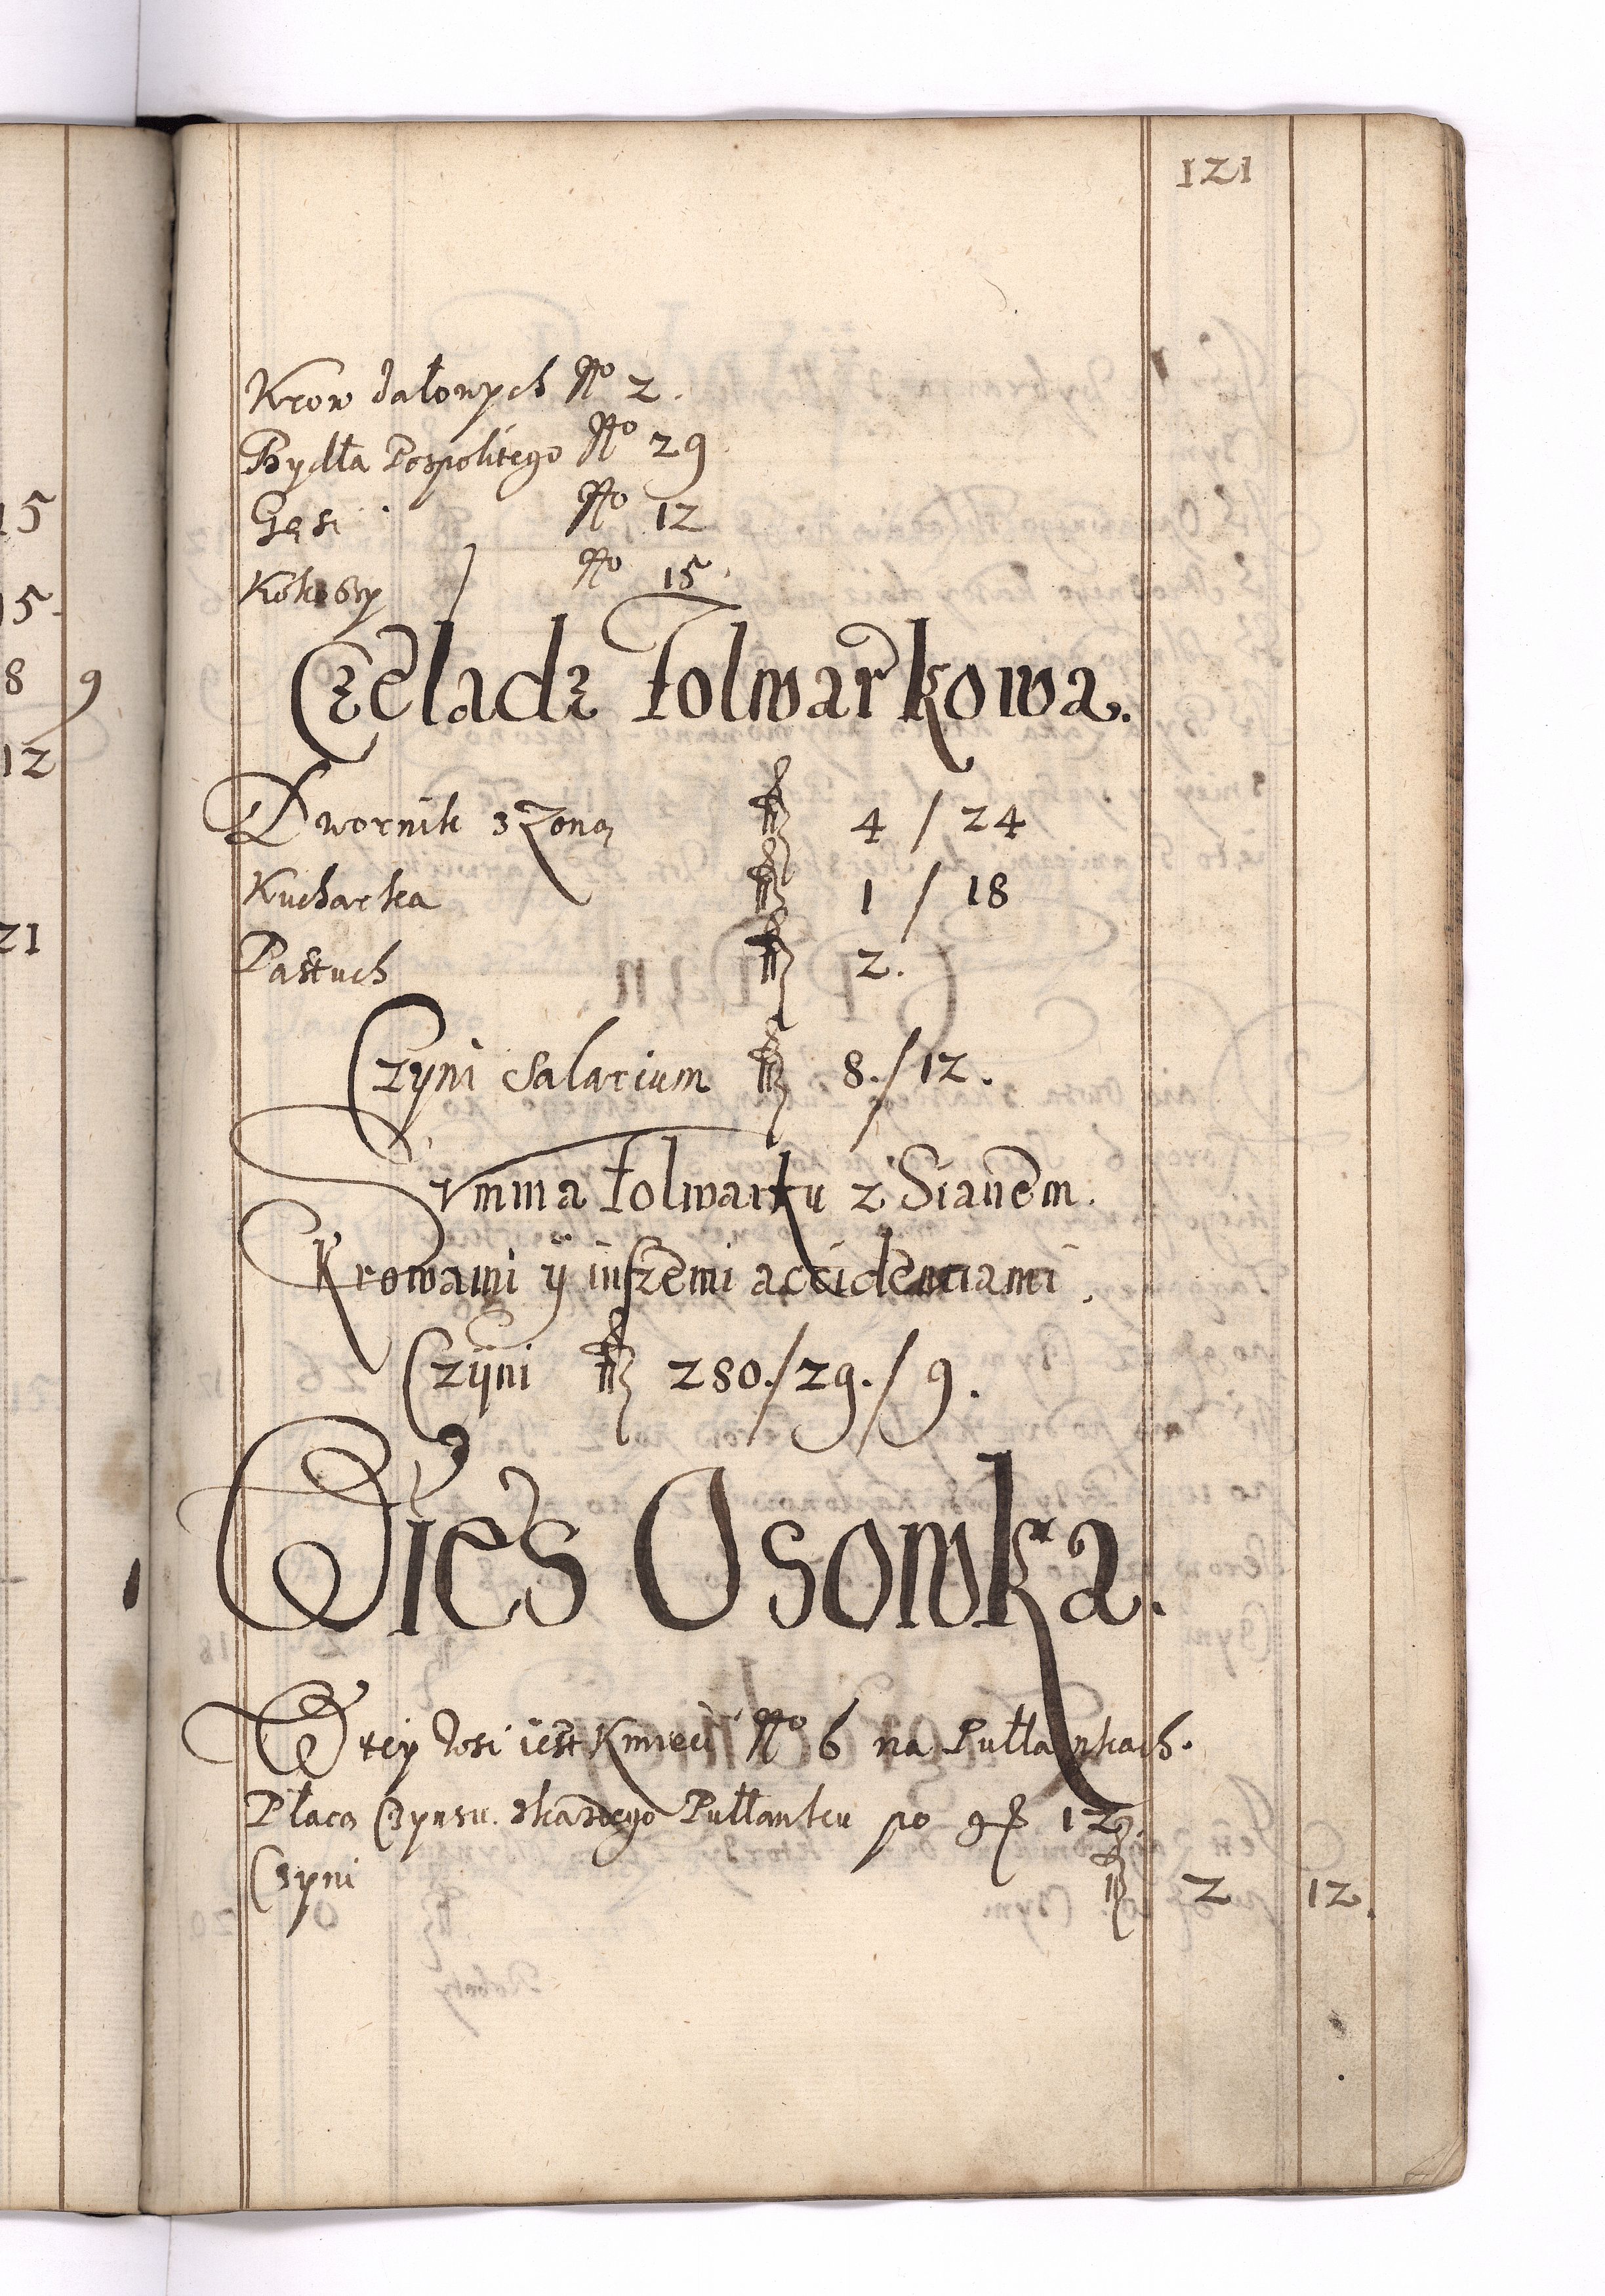 121
Krow Jałowych No 2.
Bydła Pospolitego No 29
Gęsi No 12
Kokoszy No 15.
Czeladz Folwarkowa.
Dwornik z Zoną f 4 / 24
Kucharka f 1 / 18
Pastuch f 2.
Czyni Salarium f 8. / 12.
Summa Folwarku z Sianem.
Krowami ÿ inszemi accidenciami.
Czÿni f 280. / 29. / 9.
Wies Osowka.
W tey Wsi iest Kmieci No 6 na Pułłankach.
Płacą Czynsu. zkazdego Pułłanku po gr 12.
Czyni f 2 12.
15
15.
8 9
12
21